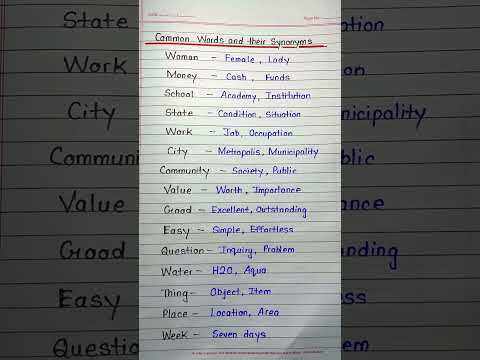 Common Words and their Synonyms
Woman - Female, Lady
Money - Cash, Funds
School - Academy, Institution
State - Condition, Situation
Work - Job, Occupation
City - Metropolis, Municipality
Community - Society, Public
Value - Worth, Importance
Good - Excellent, Outstanding
Easy - Simple, Effortless
Question - Inquiry, Problem
Water - H2O, Aqua
Thing - Object, Item
Place - Location, Area
Week - Seven days
State
Work
City
Communi
Value
Good
Easy
Question
nicipality
blic
ance
nding